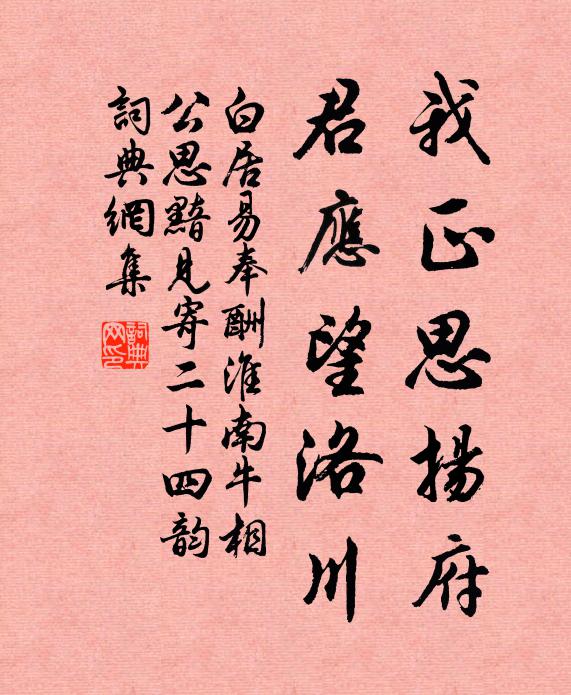 我正思揚府
君應望洛川
白居易奉酬淮南牛相
公思黯見寄二十四韵
詞典網集
詞典网印